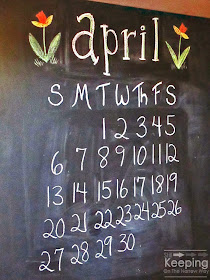 april
S M T W Th F S
1 2 3 4 5
6 7 8 9 10 11 12
13 14 15 16 17 18 19
20 21 22 23 24 25 26
27 28 29 30
Keeping
On The Narrow Way